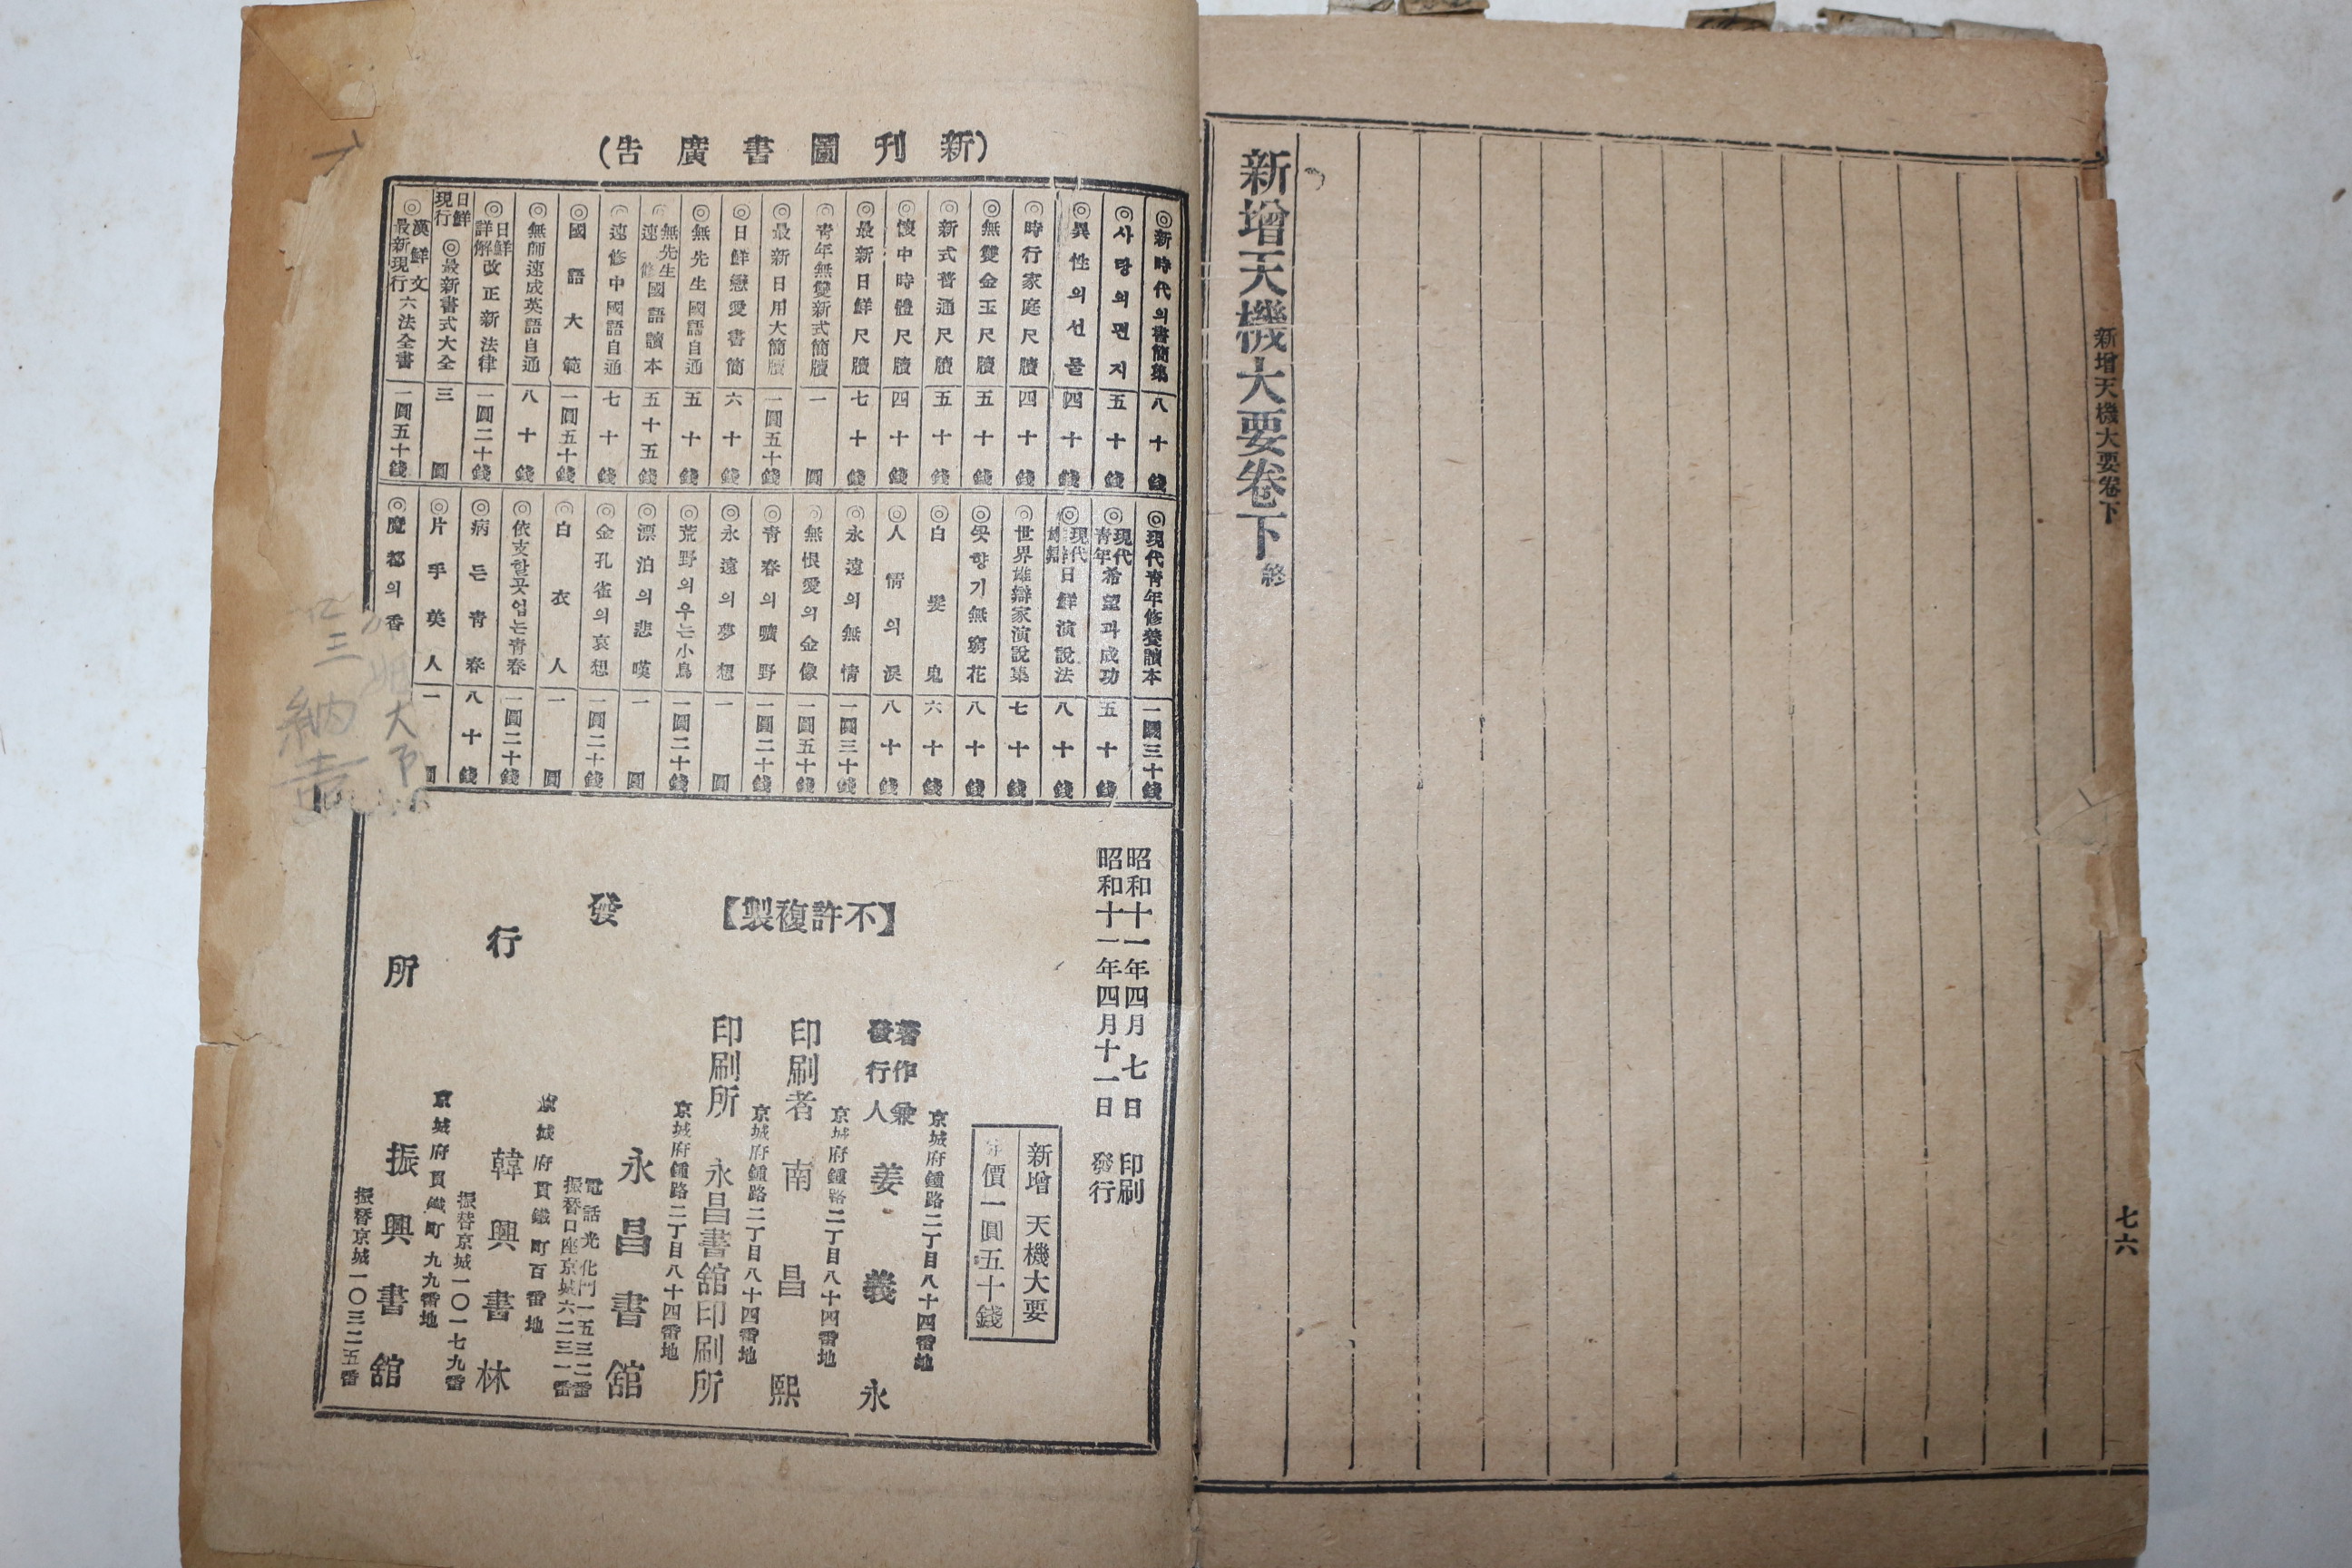 新增天機大要卷下
七六
新增天機大要卷下終
(新刊圖書廣告)
◎新時代의書簡集 八十錢
◎사랑의편지 五十錢
◎異性의선물 四十錢
◎時行家庭尺牘 四十錢
◎無雙金玉尺牘 五十錢
◎新式普通尺牘 五十錢
◎懷中時體尺牘 四十錢
◎最新日鮮尺牘 七十錢
◎靑年無雙新式簡牘 一圓
◎最新日用大簡牘 一圓五十錢
◎日鮮戀愛書簡 六十錢
◎無先生國語自通 五十錢
◎無先生速修國語讀本 五十五錢
◎速修中國語自通 七十錢
◎國語大範 一圓五十錢
◎無師速成英語自通 八十錢
◎日鮮詳解改正新法律 一圓二十錢
日鮮現行◎最新書式大全 三圓
◎漢鮮文最新現行六法全書 一圓五十錢
◎現代靑年修養讀本 一圓三十錢
◎現代靑年希望과成功 五十錢
◎現代日鮮演說法 八十錢
◎世界雄辯家演說集 七十錢
◎못향기無窮花 八十錢
◎白髮鬼 六十錢
◎人情의淚 八十錢
◎永遠의無情 一圓三十錢
◎無恨愛의金像 一圓五十錢
◎靑春의曠野 一圓二十錢
◎永遠의夢想 一圓
◎荒野의우는小鳥 一圓二十錢
◎漂泊의悲嘆 一圓
◎金孔雀의哀想 一圓二十錢
◎白衣人 一圓
◎依支할곳업는靑春 一圓二十錢
◎病든靑春 八十錢
◎片手美人 一圓
◎魔都의香
昭和十一年四月七日 印刷
昭和十一年四月十一日 發行
新增 天機大要
價一圓五十錢
【不許複製】
京城府鍾路二丁目八十四番地
著作兼發行人 姜義永
京城府鍾路二丁目八十四番地
印刷者 南昌熙
京城府鍾路二丁目八十四番地
印刷所 永昌書舘印刷所
京城府鍾路二丁目八十四番地
發行所
永昌書舘
電話光化門一五三二番
振替口座京城六二三一番
京城府貫鐵町百番地
韓興書林
振替京城一〇一七九番
京城府貫鐵町九九番地
振興書舘
振替京城一〇三二五番
三
納
大